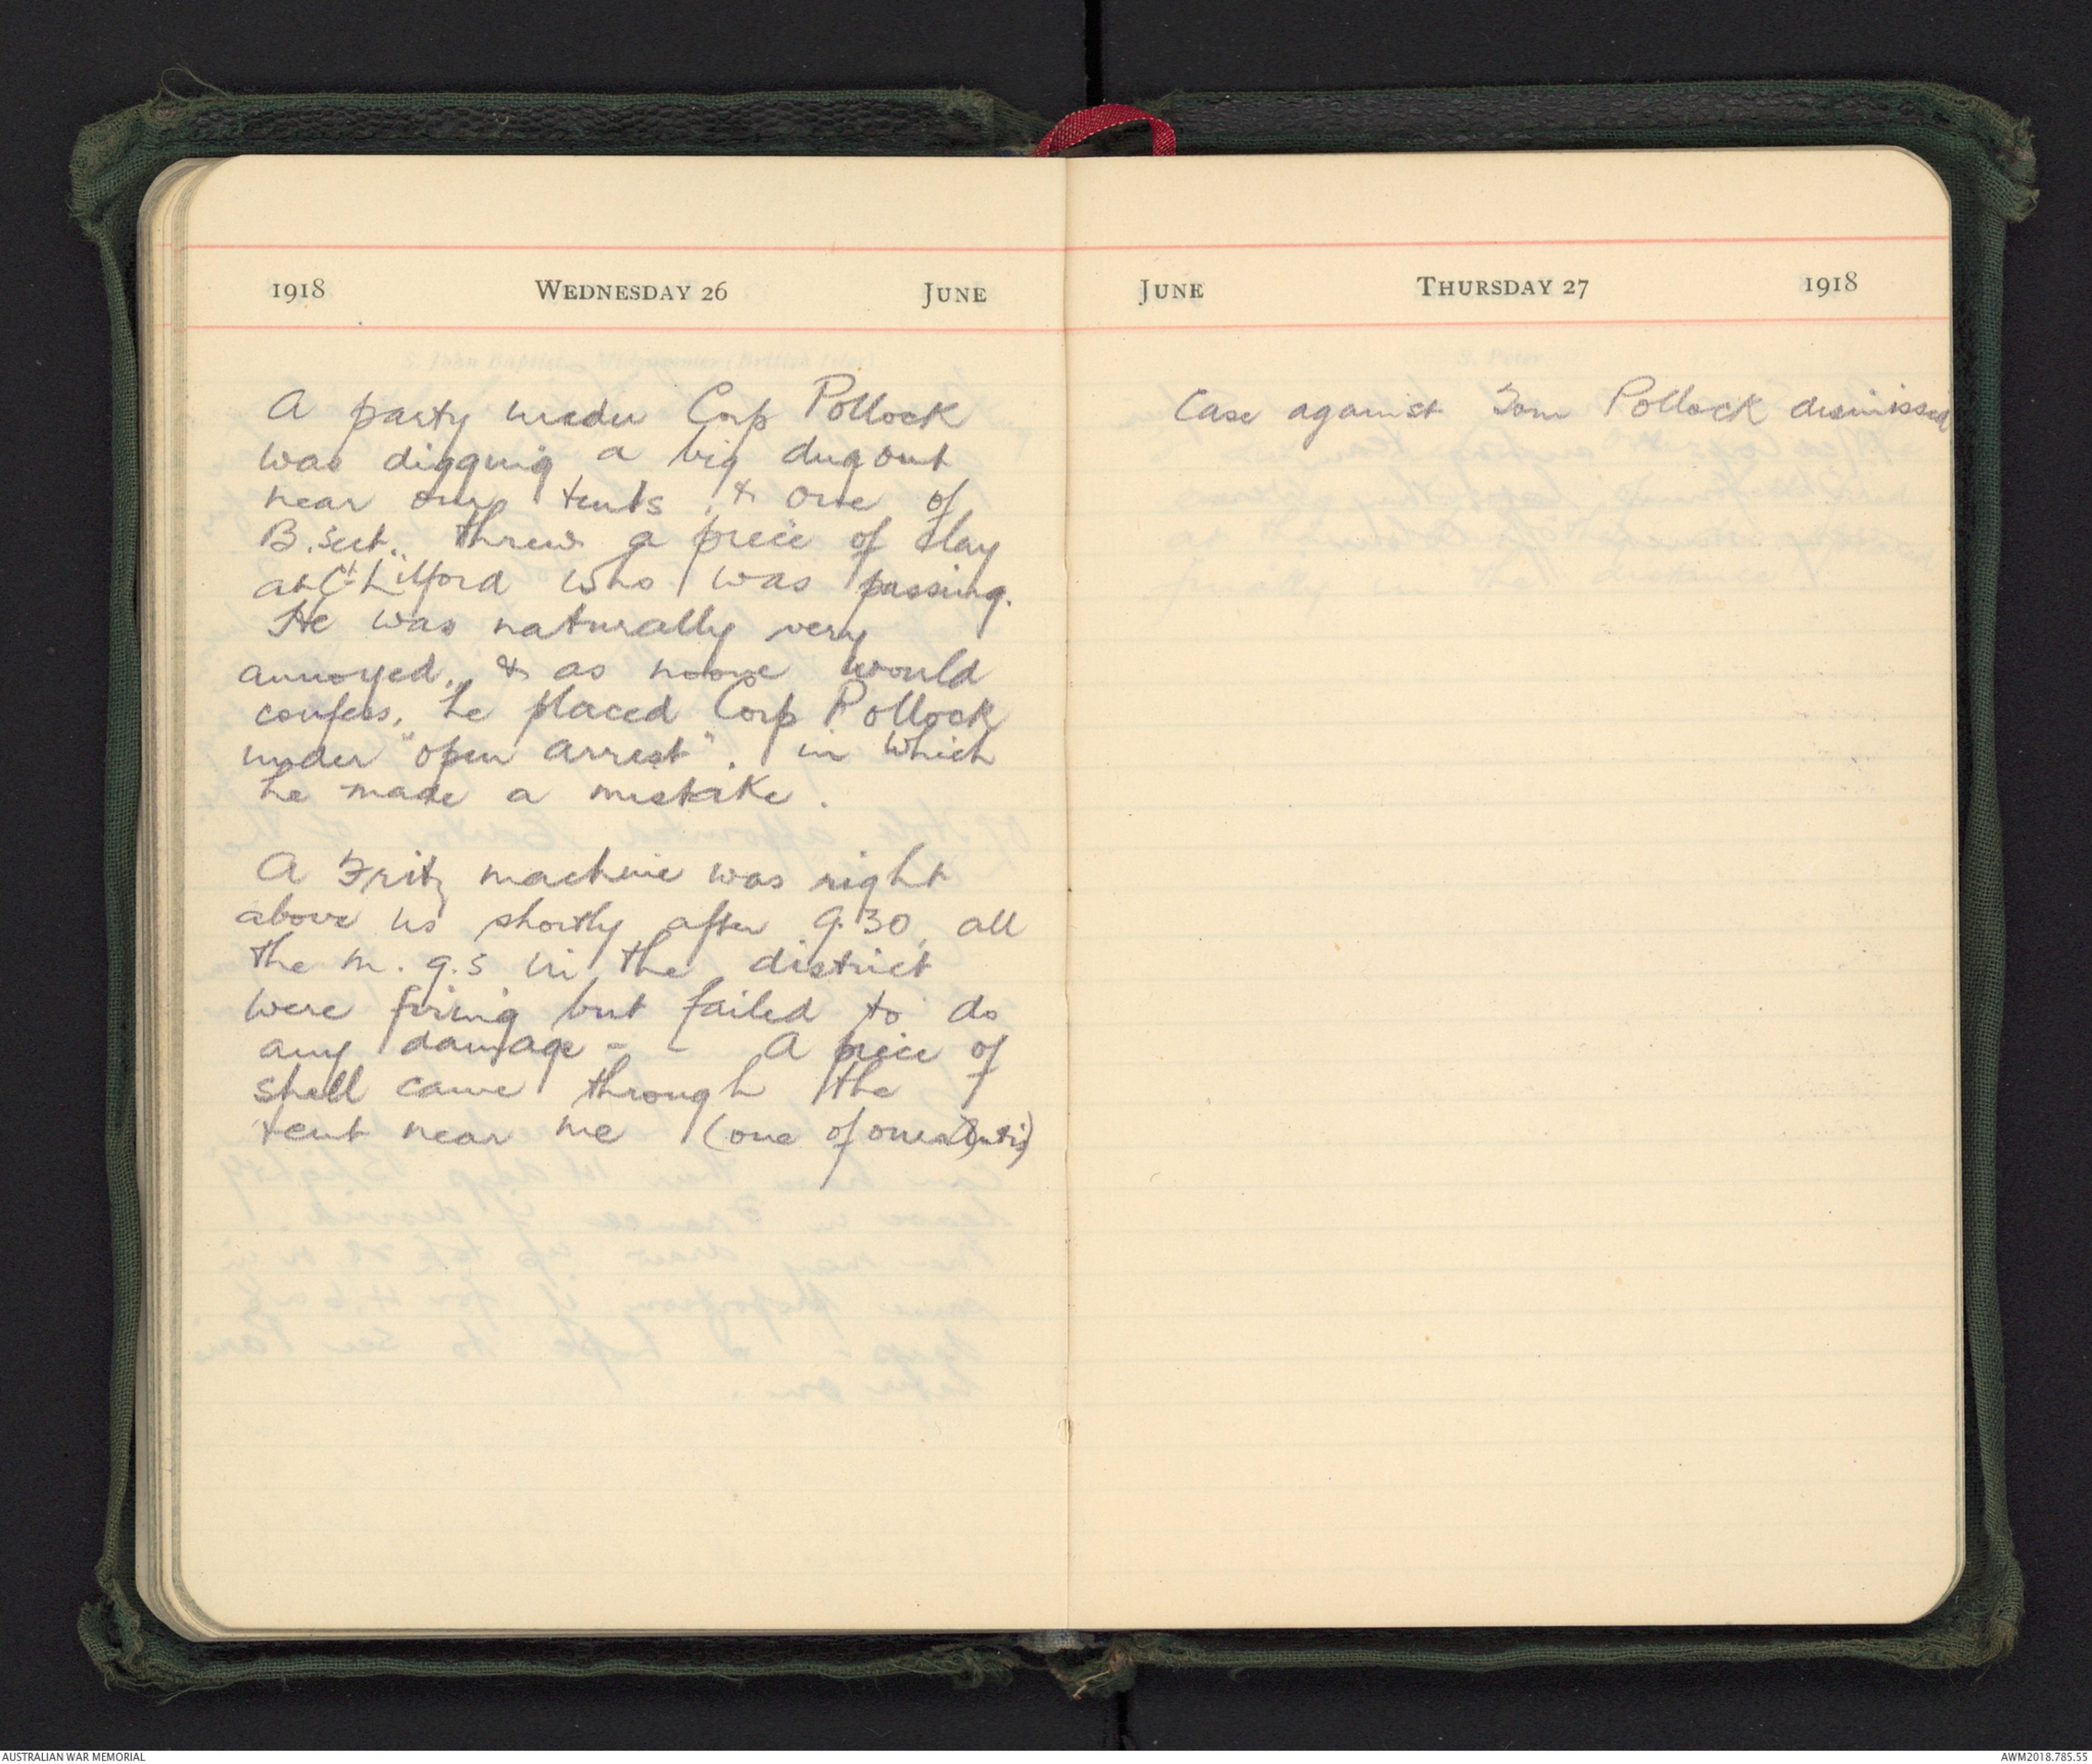 1918 WEDNESDAY 26 JUNE
A party under Corp Pollock
was digging a big dugout
near our tents, & one of
B. Sect. threw a piece of clay
at Ct Lilford who was passing.
He was naturally very
annoyed, & as noone would
confess, he placed Corp Pollock
under "open arrest". in which
he made a mistake.
A Fritz machine was right
above us shortly after 9.30, all
the m.g.s in the district
were firing but failed to do
any damage - - A piece of
shell came through the
tent near me (one of our
JUNE THURSDAY 27 1918
Case against Tom Pollock dismissed
AUSTRALIAN WAR MEMORIAL
AWM2018.785.53